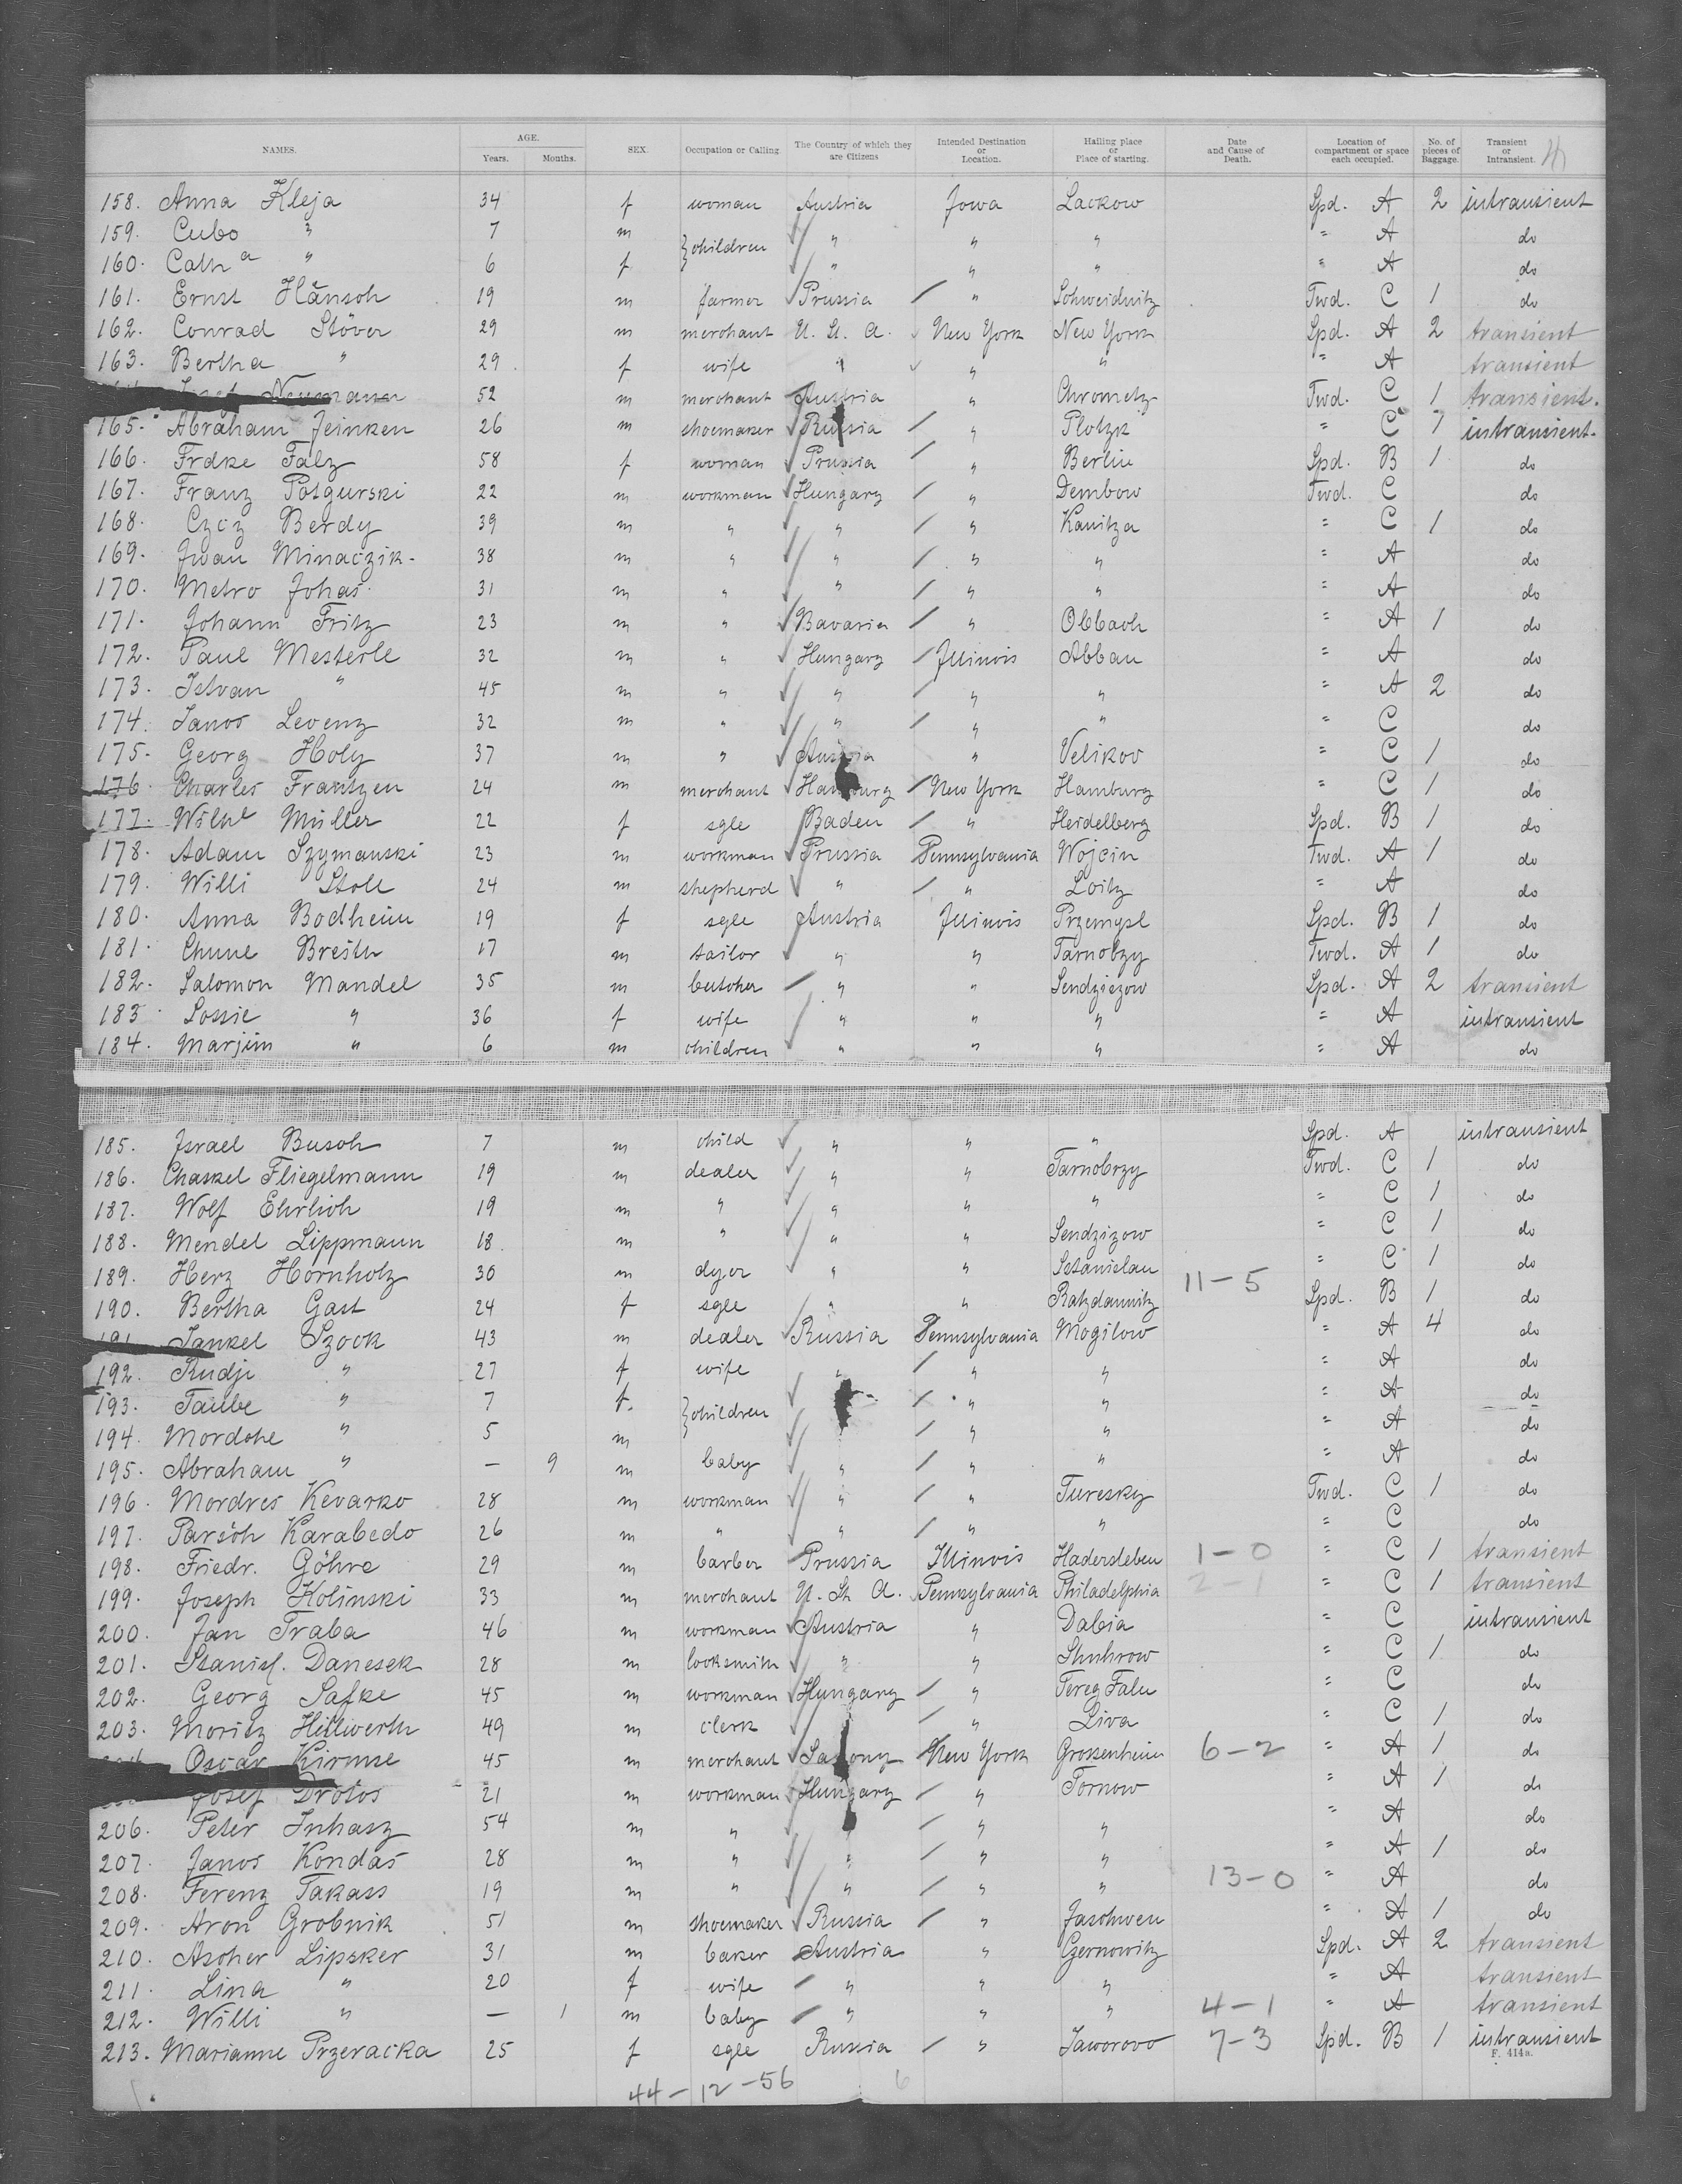 NAMES. AGE. Years. Months. SEX. Occupation or Calling. The Country of which they are Citizens Intended Destination or Location. Hailing place or Place of starting. Date and Cause of Death. Location of compartment or space each occupied. No. of pieces of Baggage. Transient or Intransient.
158. Anna Kleja 34 f woman Austria Iowa Lackow Spd. A 2 intransient
159. Cubo " 7 m } children " " " " A do
160. Cathª " 6 f " " " " A do
161. Ernst Hänsch 19 m farmer Prussia " Schweidnitz Twd. C 1 do
162. Conrad Stöver 29 m merchant U. St. A. New York New York Spd. A 2 transient
163. Bertha " 29 f wife " " " " A transient
Neumann 52 m merchant Austria " Chrometz Twd. C 1 transient.
165. Abraham Jeinken 26 m shoemaker Russia " Plotzk " C 1 intransient.
166. Frdke Falz 58 f woman Prussia " Berlin Spd. B 1 do
167. Franz Potgurski 22 m workman Hungary " Dembow Twd. C do
168. Cziz Berdy 39 m " " " Kanitza " C 1 do
169. Iwan Minaczik 38 m " " " " " A do
170. Metro Johas 31 m " " " " " A do
171. Johann Fritz 23 m " Bavaria " Obbach " A 1 do
172. Paul Mesterle 32 m " Hungary Illinois Abbau " A do
173. Istvan " 45 m " " " " " A 2 do
174. Janos Levenz 32 m " " " " " C do
175. Georg Holy 37 m " Austria " Velikov " C 1 do
176. Charles Frantzen 24 m merchant Hamburg New York Hamburg " C 1 do
177. Wilhe Müller 22 f sgle Baden " Heidelberg Spd. B 1 do
178. Adam Szymanski 23 m workman Prussia Pennsylvania Wojcin Twd. A 1 do
179. Willi Stoll 24 m shepherd " " Loitz " A do
180. Anna Bodheim 19 f sgle Austria Illinois Przemysl Spd. B 1 do
181. Chune Breith 17 m tailor " " Tarnobzy Twd. A 1 do
182. Salomon Mandel 35 m butcher " " Sendziezow Spd. A 2 transient
183. Lossie " 36 f wife " " " " A intransient
184. Marjim " 6 m children " " " " A do
185. Israel Busch 7 m child " " " Spd. A intransient
186. Chaskel Fliegelmann 19 m dealer " " Tarnobrzy Twd. C 1 do
187. Wolf Ehrlich 19 m " " " " " C 1 do
188. Mendel Lippmann 18 m " " " Sendzizow " C 1 do
189. Herz Hornholz 30 m dyer " " Sstanislau 11-5 " C 1 do
190. Bertha Gast 24 f sgle " " Ratzdannitz Spd. B 1 do
191. Jankel Szock 43 m dealer Russia Pennsylvania Mogilow " A 4 do
192. Rudji " 27 f wife " " " " A do
193. Taube " 7 f. } children " " " A do
194. Mordche " 5 m " " " A do
195. Abraham " — 9 m baby " " " " A do
196. Mordres Kevarko 28 m workman " " Turesky Twd. C 1 do
197. Parsch Karabedo 26 m " " " " " C do
198. Friedr. Göhre 29 m barber Prussia Illinois Hadersleben 1-0 " C 1 transient
199. Joseph Kolinski 33 m merchant U. St. A. Pennsylvania Philadelphia 2-1 " C 1 transient
200. Jan Traba 46 m workman Austria " Dabia " C intransient
201. Stanisl. Danesek 28 m locksmith " " Shuhrow " C 1 do
202. Georg Safke 45 m workman Hungary " Tereg Falu " C do
203. Moritz Hillwerth 49 m clerk " Liva " C 1 do
Oscar Kirmse 45 m merchant Saxony New York Grossenhein 6-2 " A 1 do
Josef Drotos 21 m workman Hungary " Tornow " A 1 do
206. Peter Inhasz 54 m " " " " " A do
207. Janos Kondas 28 m " " " " " A 1 do
208. Ferenz Takass 19 m " " " " 13-0 " A do
209. Aron Grobnik 51 m shoemaker Russia " Jaschwen " A 1 do
210. Ascher Lipsker 31 m baker Austria " Czernowitz Spd. A 2 transient
211. Lina " 20 f wife " " " " A transient
212. Willi " — 1 m baby " " " 4-1 " A transient
213. Marianne Przeracka 25 f sgle Russia " Jaworovo 7-3 Spd. B 1 intransient
F. 414a.
44-12-56 6